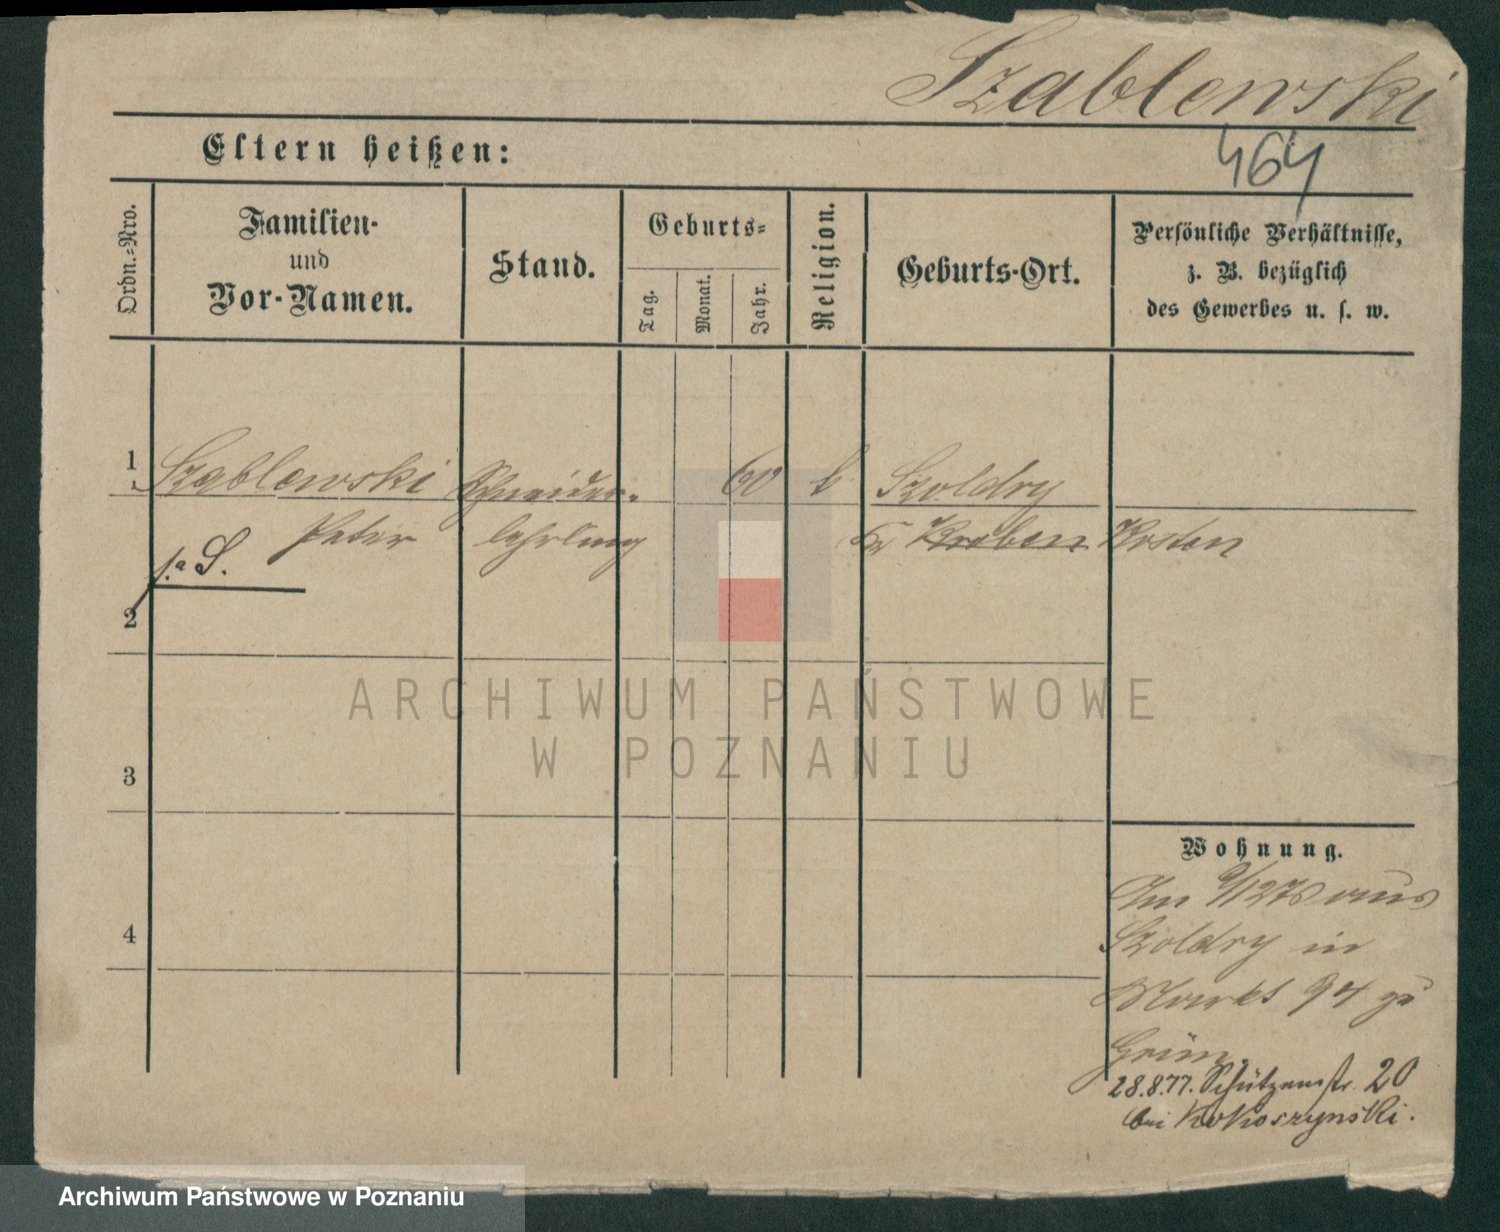 Szablewski
464
Eltern heißen:
Ordn.-Nro.
Familien-
und
Vor-Namen.
Stand.
Geburts-
Tag.
Monat.
Jahr.
Religion.
Geburts-Ort.
Persönliche Verhältnisse,
z. B. bezüglich
des Gewerbes u. s. w.
1 Szablewski Schneider- 60 k Szoldry
Peter lehrling Kr Kroben Kosten
1.a S.
2
3
4
Wohnung.
Im 9/1276 aus
Szoldry in
Markt 94 zu
Grün.
28.8.77. Schützenstr. 20
bei Kokoszynski.
ARCHIWUM PAŃSTWOWE
W POZNANIU
Archiwum Państwowe w Poznaniu